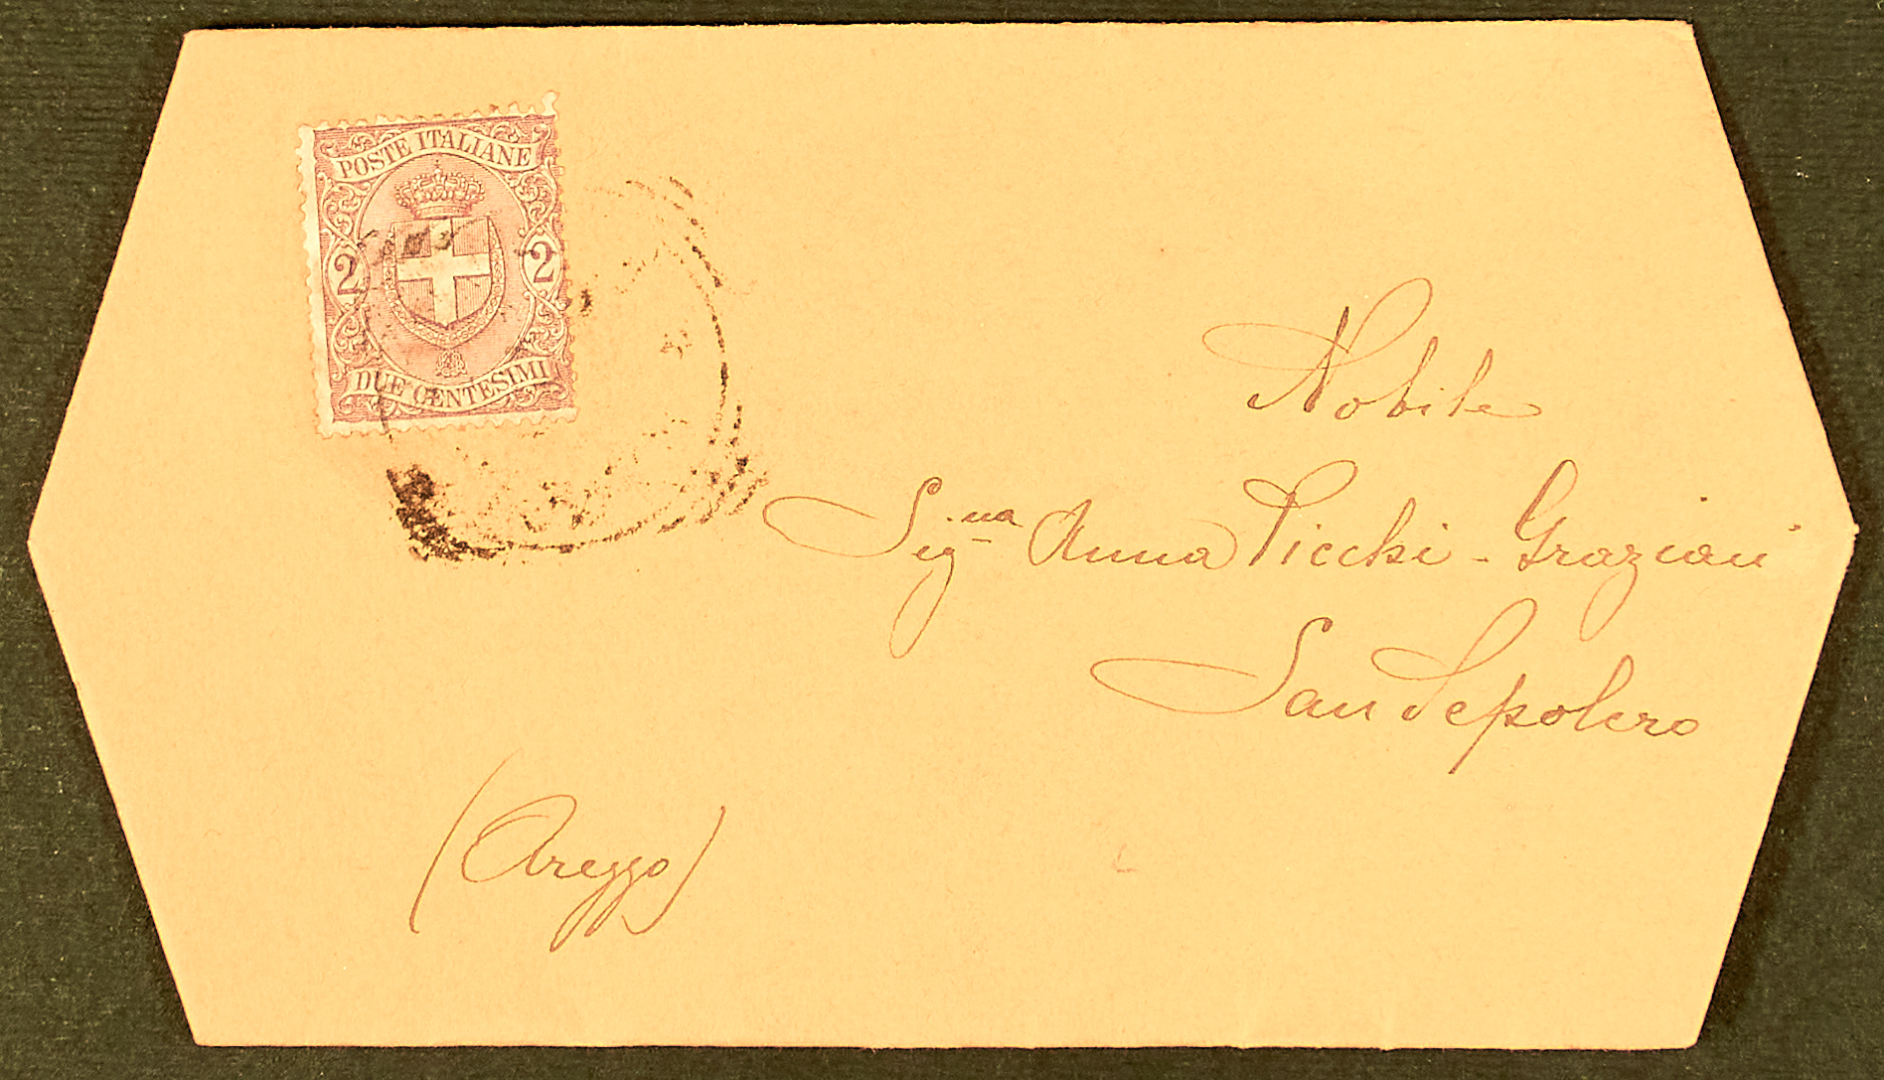 POSTE ITALIANE
2 2
DUE CENTESIMI
Nobile
Sig.na Anna Picchi - Graziani
San Sepolcro
(Arezzo)